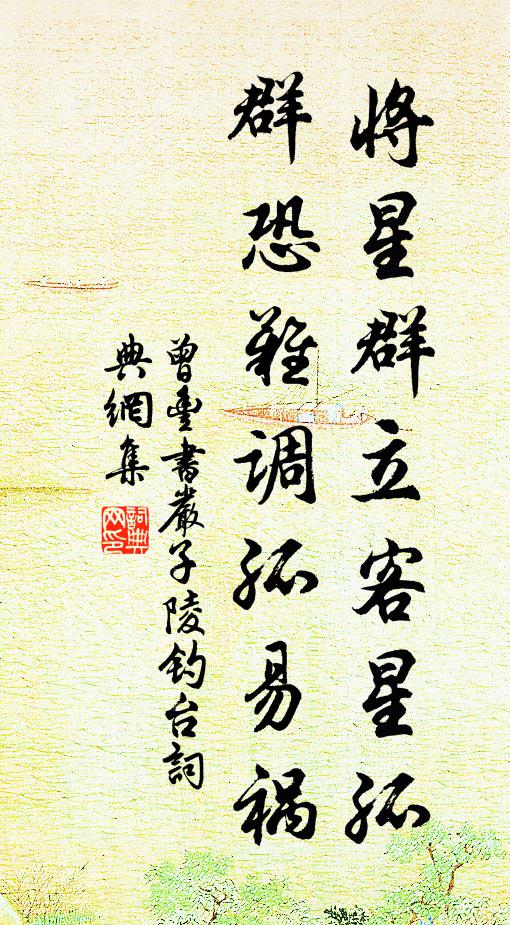 将星群立客星孤
群恐难调孤易祸
曾豊書嚴子陵钓台詞
典網集
詞典网印